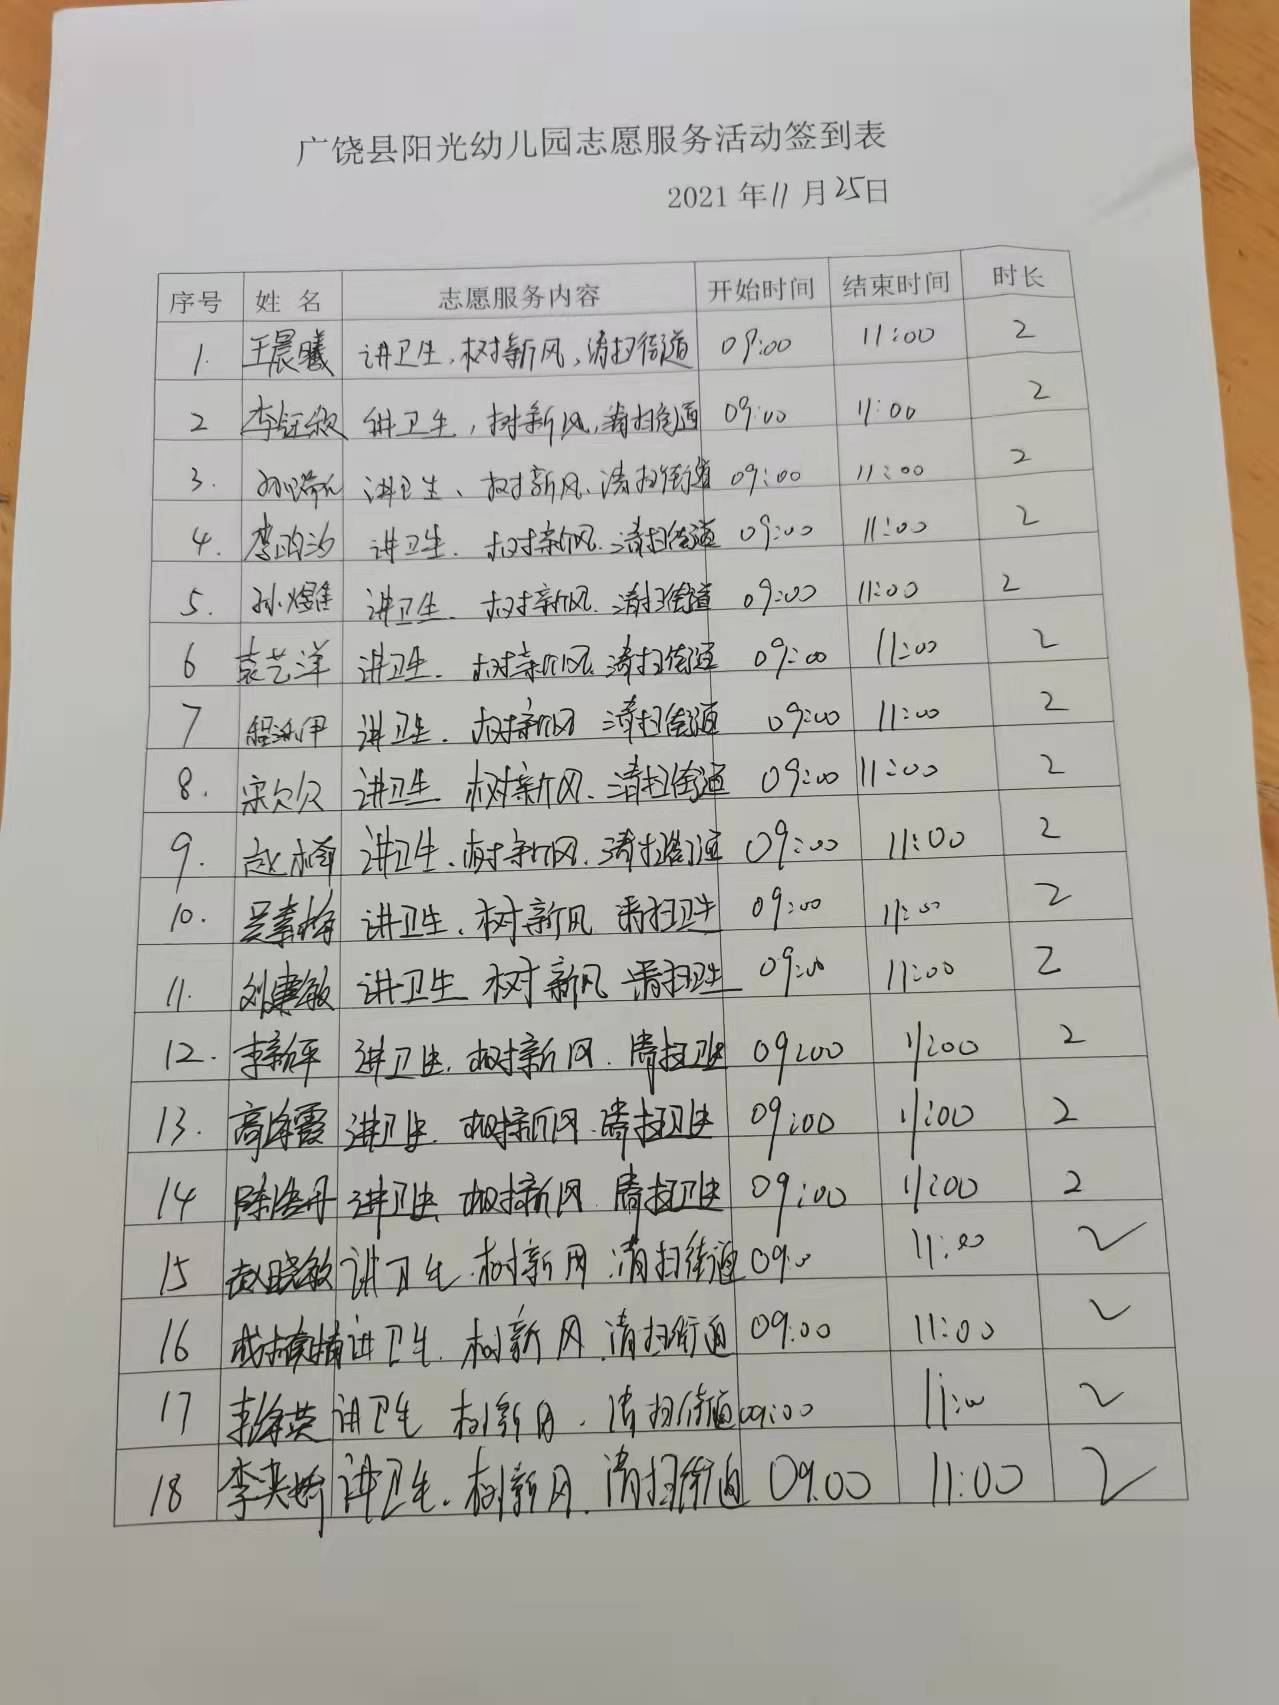 广饶县阳光幼儿园志愿服务活动签到表
2021年11月25日
序号 姓名 志愿服务内容 开始时间 结束时间 时长
1. 王晨曦 讲卫生,树新风,清扫街道 09:00 11:00 2
2 李钰欣 讲卫生,树新风,清扫街道 09:00 11:00 2
3. 讲卫生、树新风、清扫街道 09:00 11:00 2
4. 李 讲卫生.树新风.清扫街道 09:00 11:00 2
5. 孙煜佳 讲卫生.树新风.清扫街道 09:00 11:00 2
6 袁艺洋 讲卫生.树新风.清扫街道 09:00 11:00 2
7 程 伊 讲卫生.树新风 清扫街道 09:00 11:00 2
8. 宋 讲卫生 树新风.清扫街道 09:00 11:00 2
9. 赵 讲卫生.树新风.清扫街道 09:00 11:00 2
10. 吴素梅 讲卫生.树新风 清扫卫生 09:00 11:00 2
11. 刘 敏 讲卫生 树新风 清扫卫生 09:00 11:00 2
12. 李新平 讲卫生.树新风.清扫卫生 09:00 11:00 2
13. 高 霞 讲卫生.树新风.清扫卫生 09:00 11:00 2
14 陈 丹 讲卫生.树新风.清扫卫生 09:00 11:00 2
15 赵晓敏 讲卫生.树新风.清扫街道 09:0 11:00 2
16 讲卫生.树新风.清扫街道 09:00 11:00 2
17 李 英 讲卫生 树新风.清扫街道 09:00 11:00 2
18 李 娇 讲卫生.树新风.清扫街道 09:00 11:00 2